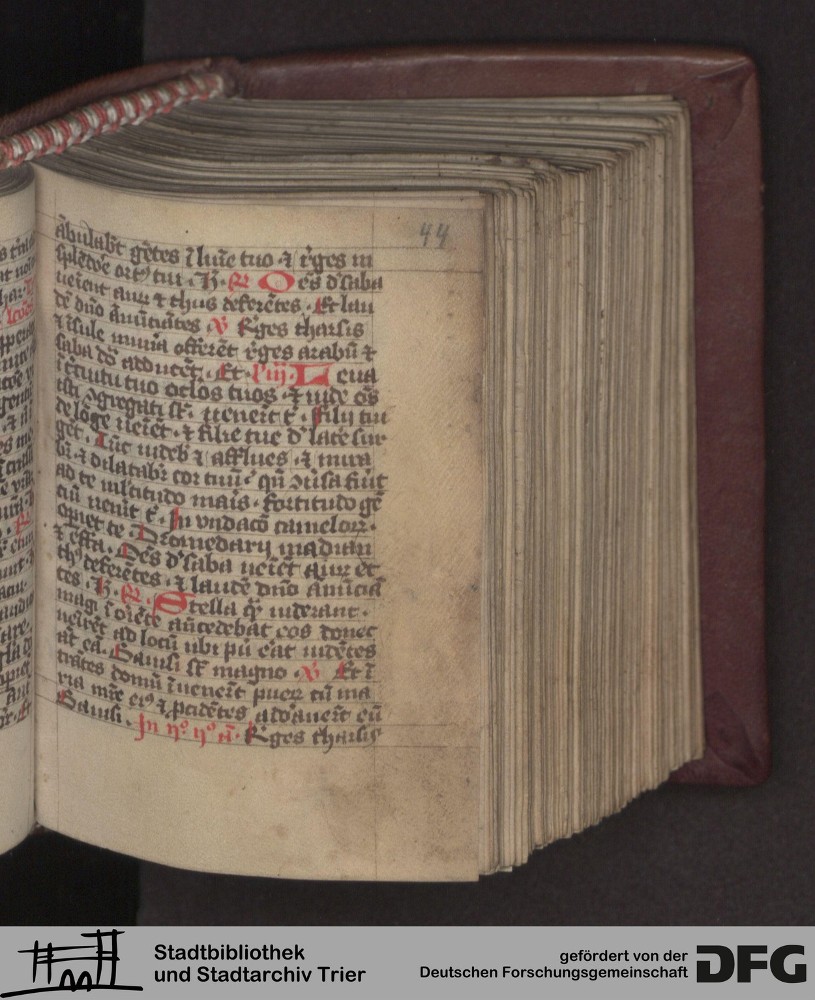 44
ābulabt gētes ī luīe tuo ⁊ rges in
splēdoe ort⁹ tui . R . Oēs d' saba
ueīent aur ⁊ thus deferētes . Et lau
dē dno ānūciātes V Rges tharsis
⁊ īsule munīa offerēt rges arabū ⁊
saba dō adducēt . Et . l'iij . Leua
ī circuitu tuo oclos tuos . ⁊ uide oēs
isti ↄgregati st . ueneīt t . filij tui
de lōge ueīēt . ⁊ filie tue d' lat'e sur
gēt . Tūc uideb ⁊ afflues . ⁊ mira
br ⁊ dilatabr cor tuū .
ad te mltitudo maīs . fortitudo gē
tiū uenit t . In vndacō camelor .
opiet te . Dromedarij madian
⁊ effa . Oēs d' saba ueīēt aur et
th⁹ deferētes . ⁊ laudē dno ānūciā
tes . R . Stella quā uiderant .
magi ī oīete ātecedebat eos donec
ueīret ad locū ubi pu erat uidētes
āt eā . Gauisi st magno . V Et ī
trātes domū īueneīt puer cū ma
ria mre ei⁹ ⁊ pcidētes adoraueīt eū
Gauisi . In ij⁰ n⁰ a . Rges tharsis
Stadtbibliothek
und Stadtarchiv Trier
gefördert von der
Deutschen Forschungsgemeinschaft
DFG